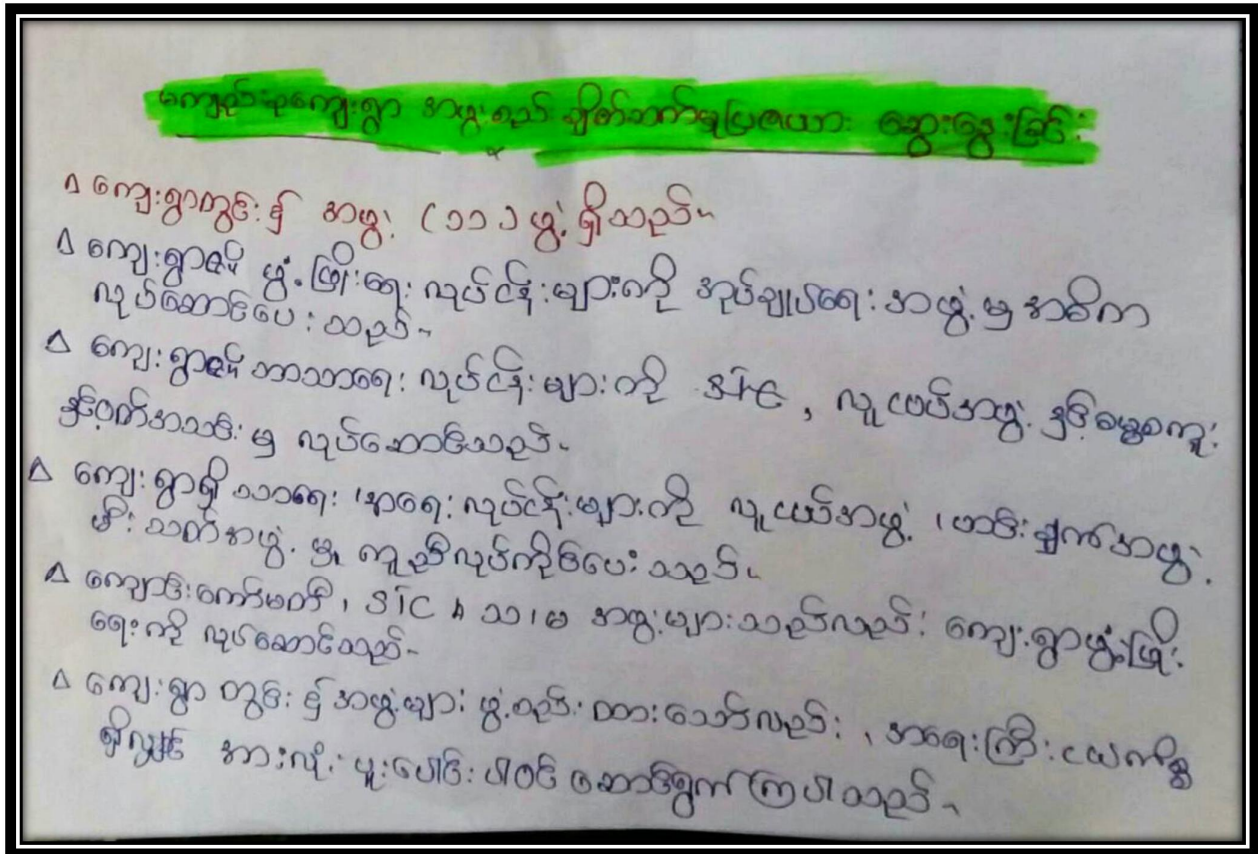 ကျေည်းစုကျေးရွာ အဖွဲ့စည်း ချိတ်ဆက်မှုပြဇယား ဆွေးနွေးခြင်း
Δ ကျေးရွာတွင်း၌ အဖွဲ့ (၁၁) ဖွဲ့ ရှိသည်။
Δ ကျေးရွာ၏ ဖွံ့ဖြိုးရေး လုပ်ငန်းများကို အုပ်ချုပ်ရေးအဖွဲ့မှ အဓိက
လုပ်ဆောင်ပေးသည်။
Δ ကျေးရွာ၏ ဘာသာရေး လုပ်ငန်းများကို STC, လူငယ်အဖွဲ့ နှင့်ဓမ္မစကူး
နှင့်ဝတ်အသင်းမှ လုပ်ဆောင်သည်။
Δ ကျေးရွာရှိ သာရေး၊နာရေးလုပ်ငန်းများကို လူငယ်အဖွဲ့၊ဟင်းချက်အဖွဲ့
မီးသတ်အဖွဲ့မှ ကူညီလုပ်ကိုင်ပေးသည်။
Δ ကျောင်းကော်မတီ၊ STC & သ၊မ အဖွဲ့များသည်လည်း ကျေးရွာဖွံ့ဖြိုး
ရေးကို လုပ်ဆောင်သည်။
Δ ကျေးရွာ တွင်း၌ အဖွဲ့များ ဖွဲ့စည်းထားသော်လည်း၊ အရေးကြီးငယ်ကိစ္စ
ရှိလျှင် အားလုံးပူးပေါင်းပါဝင် ဆောင်ရွက်ကြပါသည်။